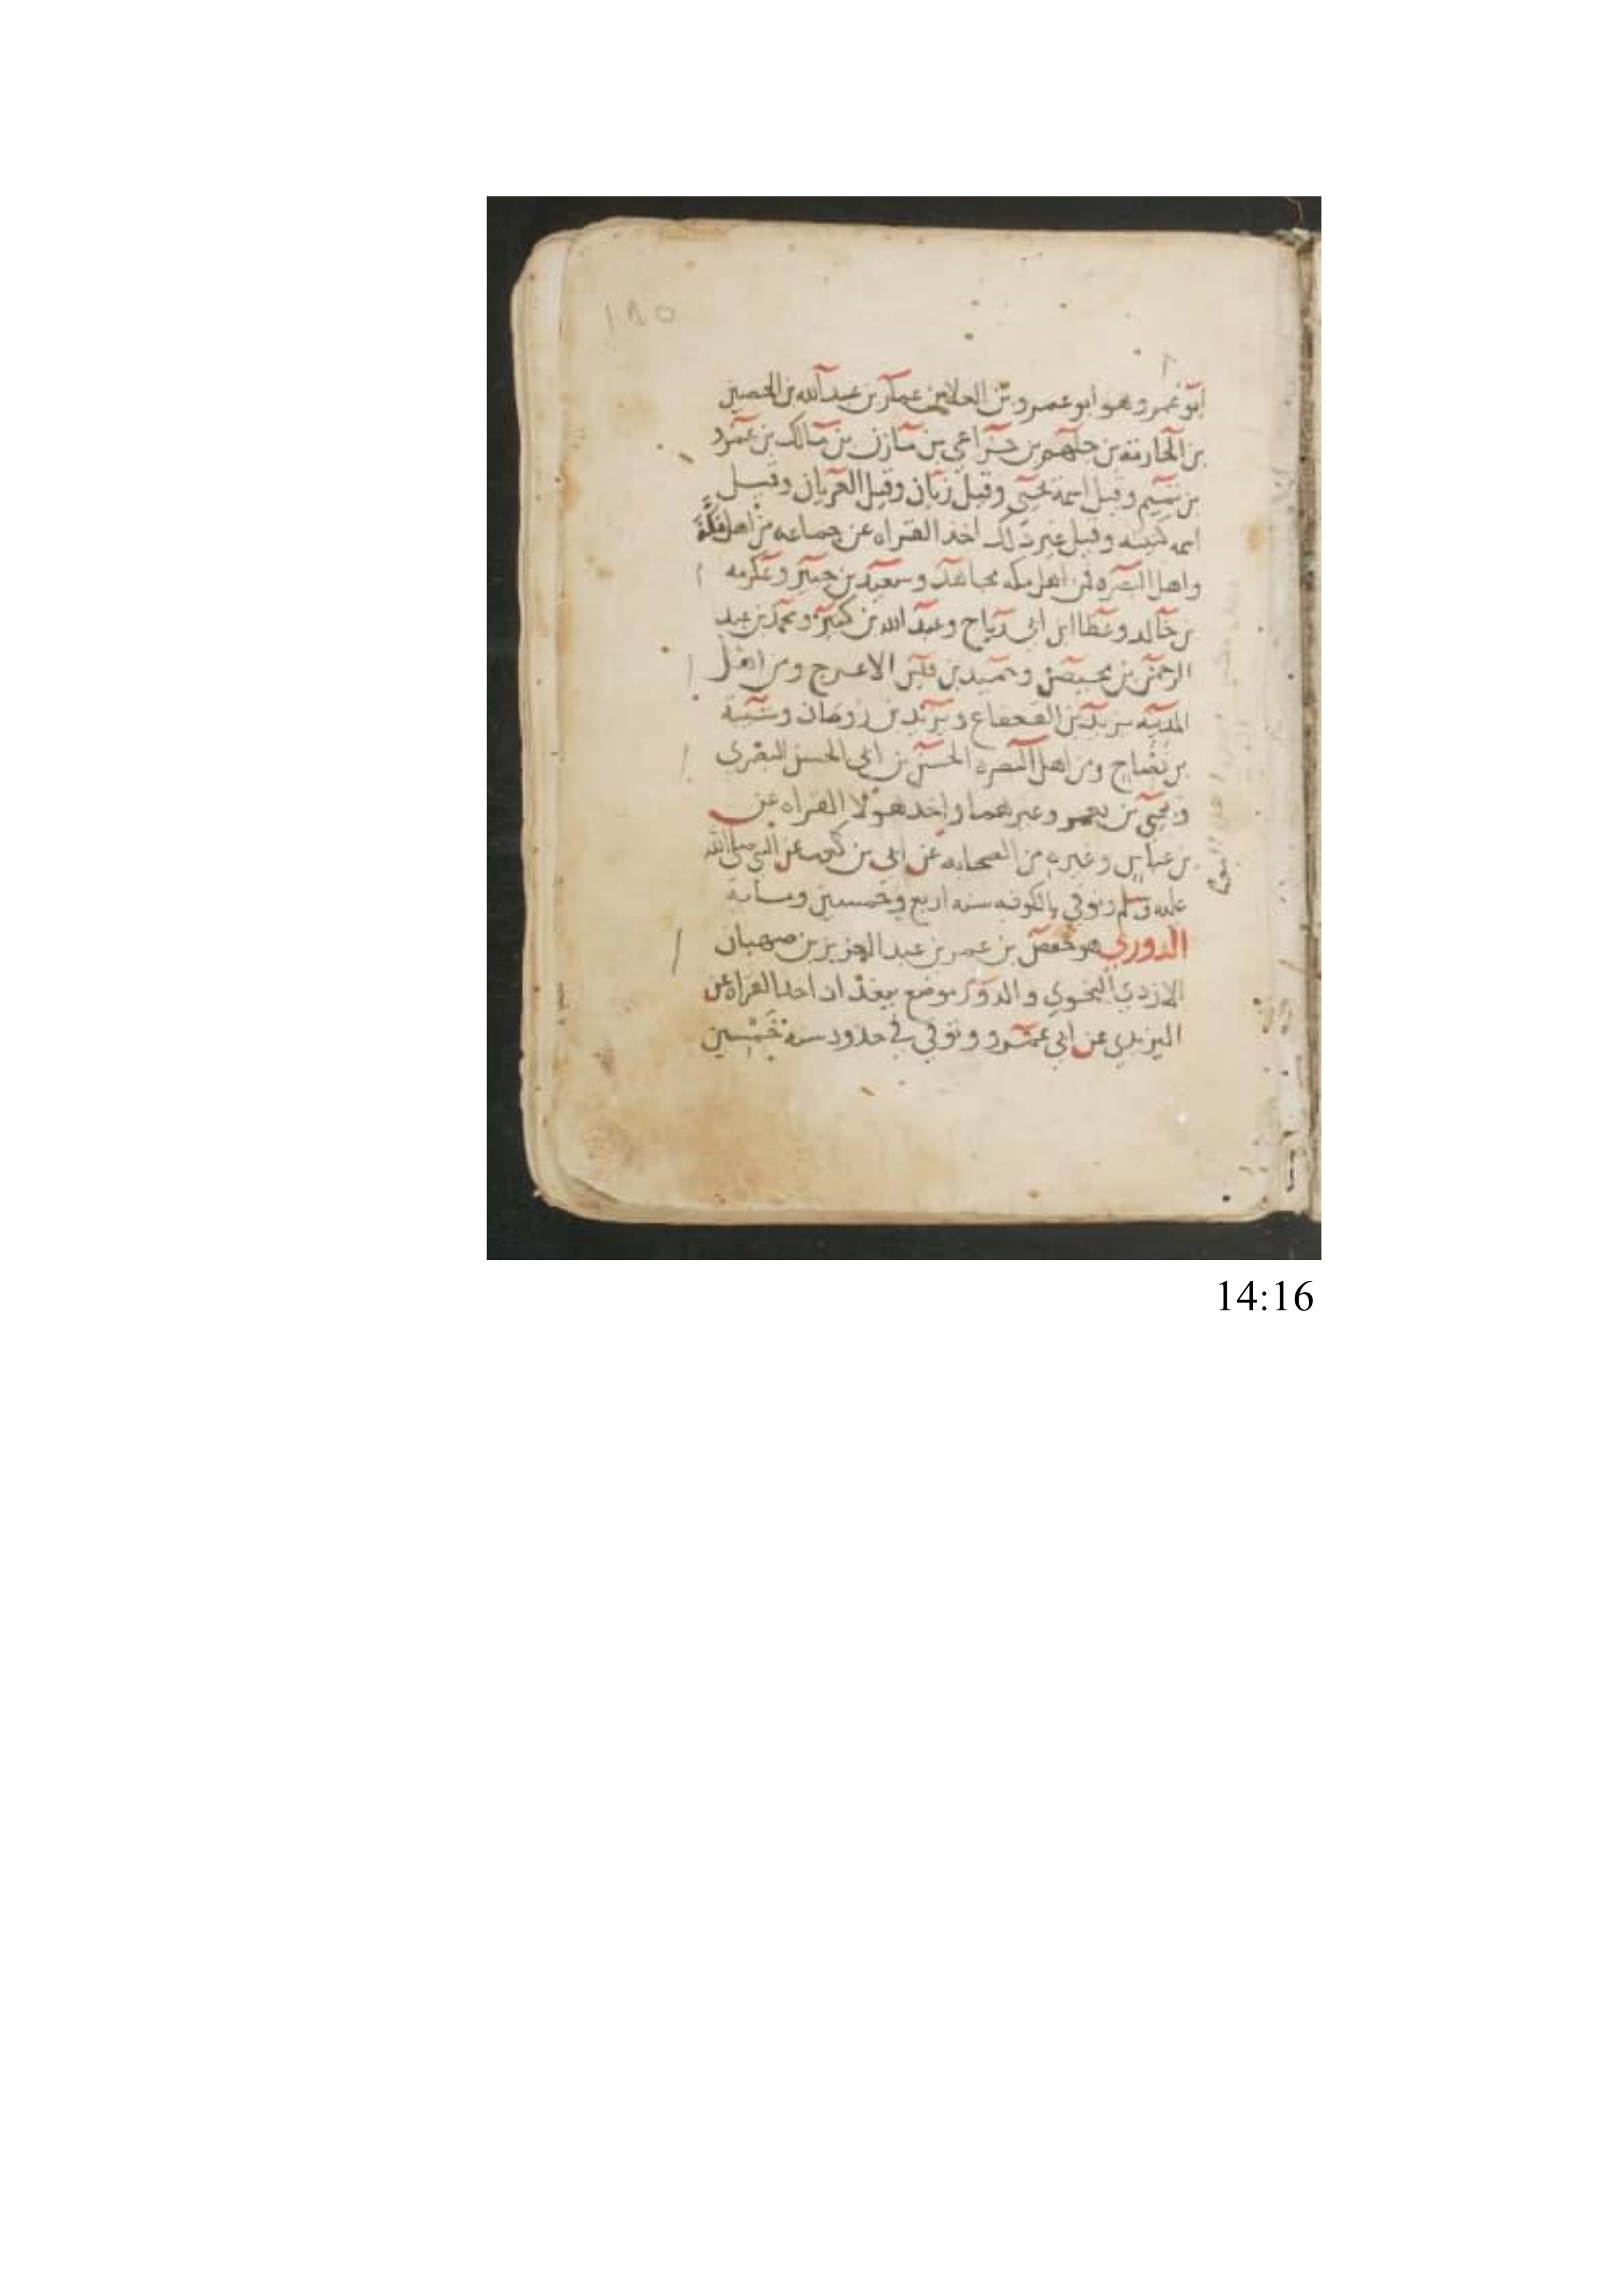 ١٨٥
ابو عمرو وهو ابو عمرو بن العلا بن عمار بن عبد الله بن الحصين
بن الحارث بن جلهم بن خزاعي بن مازن بن مالك بن عمرو
بن تميم وقيل اسمه يحيى وقيل زبان وقيل العريان وقيل
اسمه كنيته وقيل غير ذلك اخذ القراه عن جماعه من اهل مكة
واهل البصره فمن اهل مكه مجاهد وسعيد بن جبير وعكرمه
بن خالد وعطا ابن ابي رباح وعبد الله بن كثير ومحمد بن عبد
الرحمن بن محيصن وحميد بن قيس الاعرج ومن اهل
المدينه يزيد بن القعقاع ويزيد بن رومان وشيبة
بن نصاح ومن اهل البصره الحسن بن ابي الحسن البصري
ويحيى بن يعمر وغيرهما واخذ هولا القراه عن
بن عباس وغيره من الصحابه عن ابي بن كعب عن النبي صلى الله
عليه وسلم وتوفي بالكوفه سنه اربع وخمسين ومايه
الدوري هو حفص بن عمر بن عبد العزيز بن صهبان
الازدي النحوي والدور موضع ببغداد اخذ القراه عن
اليزيدي عن ابي عمرو وتوفي في حدود سنه خمسين
14:16